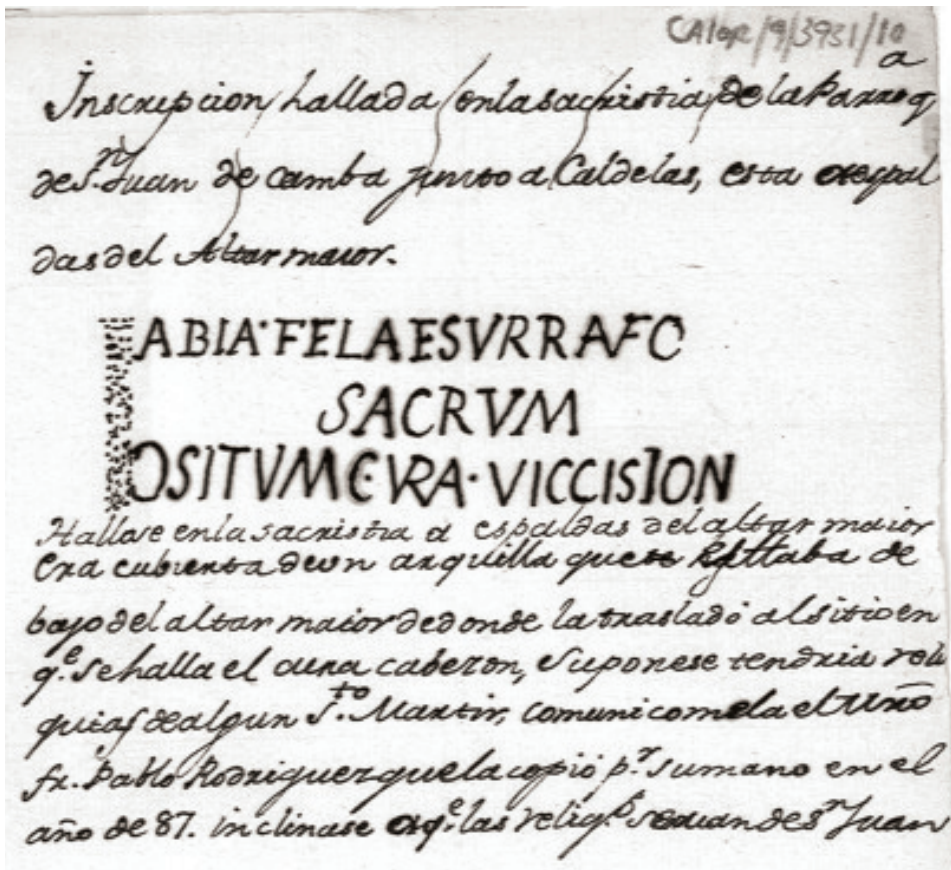 CAIOR/9/3931/10
Inscripcion hallada en la sacristia de la Parroq.a
de S.n Juan de Camba junto a Caldelas, esta a espal
das del Altar maior.
ABIA·FELAESVRRAFC
SACRVM
OSITVMEVRA·VICCISION
Hallase en la sacristia a espaldas del altar maior
Era cubierta de un arquilla que estaba de
bajo del altar maior de donde la trasladó al sitio en
q.e se halla el cura cabezon, suponese tendria reli
quias de algun S.to Martir, comunicomela el
fr. Pablo Rodriguez que la copió p.r su mano en el
año de 87. inclinase a q.e las reliq.s serian de S.n Juan